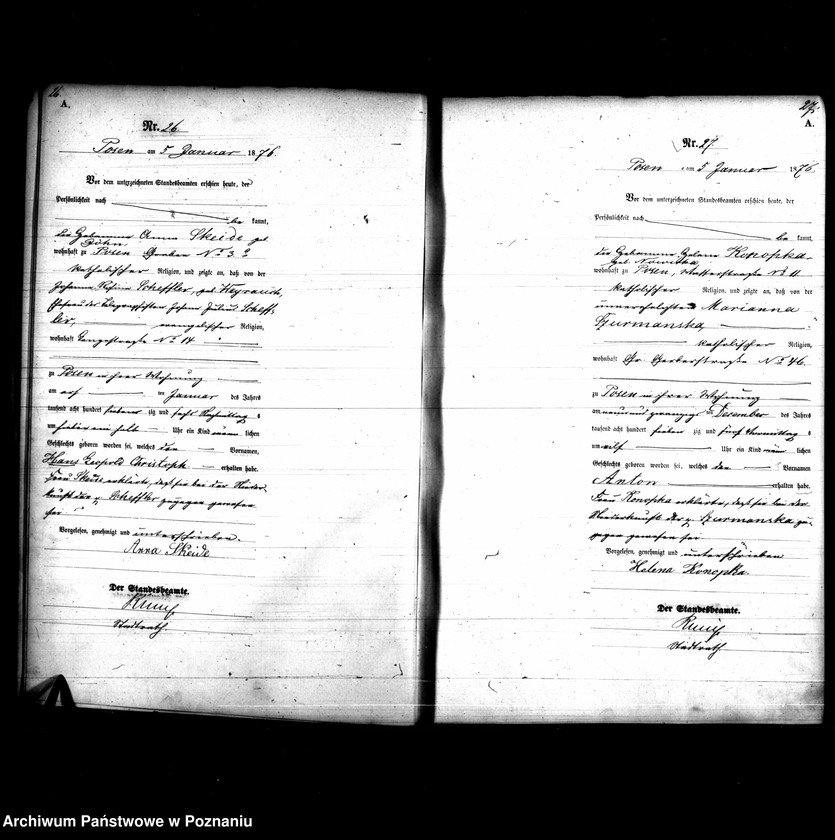 26.
A.
Nr. 26.
Posen am 5 Januar 1876.
Vor dem unterzeichneten Standesbeamten erschien heute, der
Persönlichkeit nach
be kannt,
die Hebamme Anna Skeide geb.
wohnhaft zu Posen Graben No 3
katholischer Religion, und zeigte an, daß von der
Johanna Scheffler, geb.
Ehefrau des Telegraphisten Johann Julius Scheff-
ler, evangelischer Religion,
wohnhaft Langestraße No 14
zu Posen in ihrer Wohnung
am Januar des Jahres
tausend acht hundert siebenzig und sechs Nachmittags
um sieben ein halb Uhr ein Kind männlichen
Geschlechts geboren worden sei, welches den Vornamen,
Hans Leopold Christoph erhalten habe.
Frau Skeide erklärte, daß sie bei der Nieder-
kunft der p. Scheffler zugegen gewesen
sei
Vorgelesen, genehmigt und unterschrieben.
Anna Skeide
Der Standesbeamte.
Stadtrath.
27.
A.
Nr. 27.
Posen am 5 Januar 1876
Vor dem unterzeichneten Standesbeamten erschien heute, der
Persönlichkeit nach
be kannt,
die Hebamme Helena Konopka
geb. Nowicka
wohnhaft zu Posen, No 11
katholischer Religion, und zeigte an, daß von der
unverehelichten Marianna
Szurmanska
katholischer Religion,
wohnhaft Gr. Gerberstraße No 46.
zu Posen in ihrer Wohnung
am neun und zwanzigsten Dezember des Jahres
tausend acht hundert siebenzig und fünf Vormittags
um elf Uhr ein Kind männlichen
Geschlechts geboren worden sei, welches den Vornamen
Anton erhalten habe.
Frau Konopka erklärte, daß sie bei der
Niederkunft der p. Szurmanska zu-
gegen gewesen sei.
Vorgelesen, genehmigt und unterschrieben
Helena Konopka.
Der Standesbeamte.
Stadtrath.
Archiwum Państwowe w Poznaniu